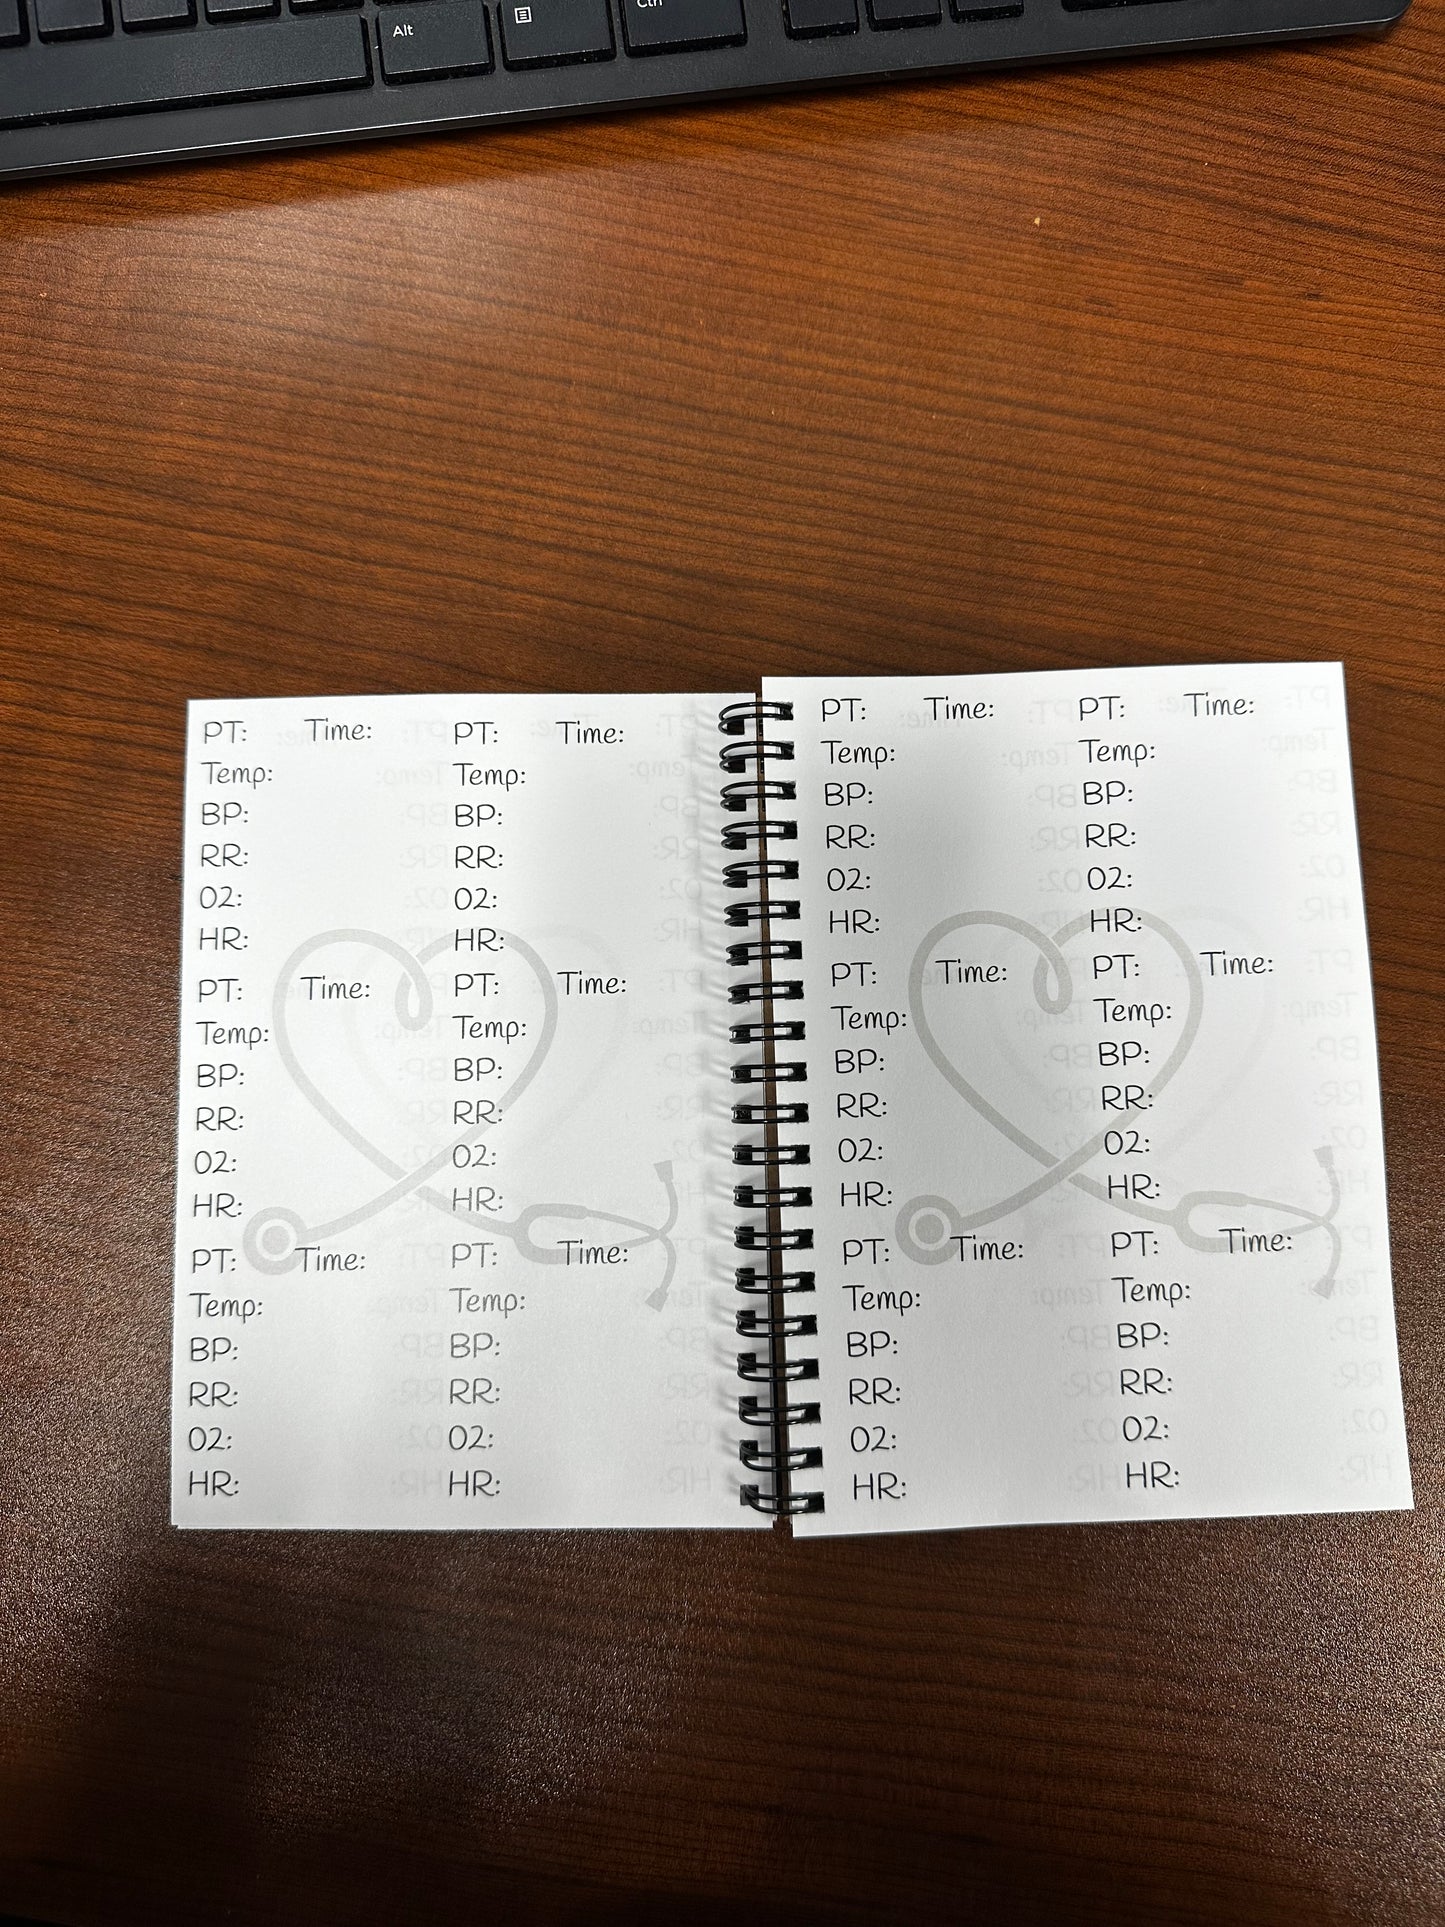 Alt
Ctrl
PT: Time: PT: Time:
Temp: Temp:
BP: BP:
RR: RR:
O2: O2:
HR: HR:
PT: Time: PT: Time:
Temp: Temp:
BP: BP:
RR: RR:
O2: O2:
HR: HR:
PT: Time: PT: Time:
Temp: Temp:
BP: BP:
RR: RR:
O2: O2:
HR: HR:
PT: Time: PT: Time:
Temp: Temp:
BP: BP:
RR: RR:
O2: O2:
HR: HR:
PT: Time: PT: Time:
Temp: Temp:
BP: BP:
RR: RR:
O2: O2:
HR: HR:
PT: Time: PT: Time:
Temp: Temp:
BP: BP:
RR: RR:
O2: O2:
HR: HR: